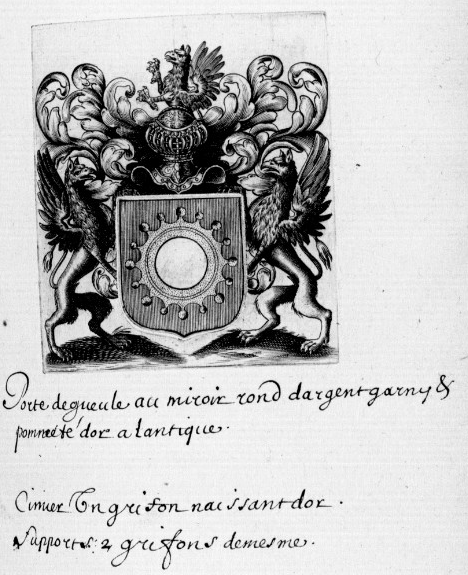 Porte de gueule au miroir rond dargent garny &
pommeté dor a lantique.
Cimier Un grifon naissant dor.
Supports: 2 grifons demesme.